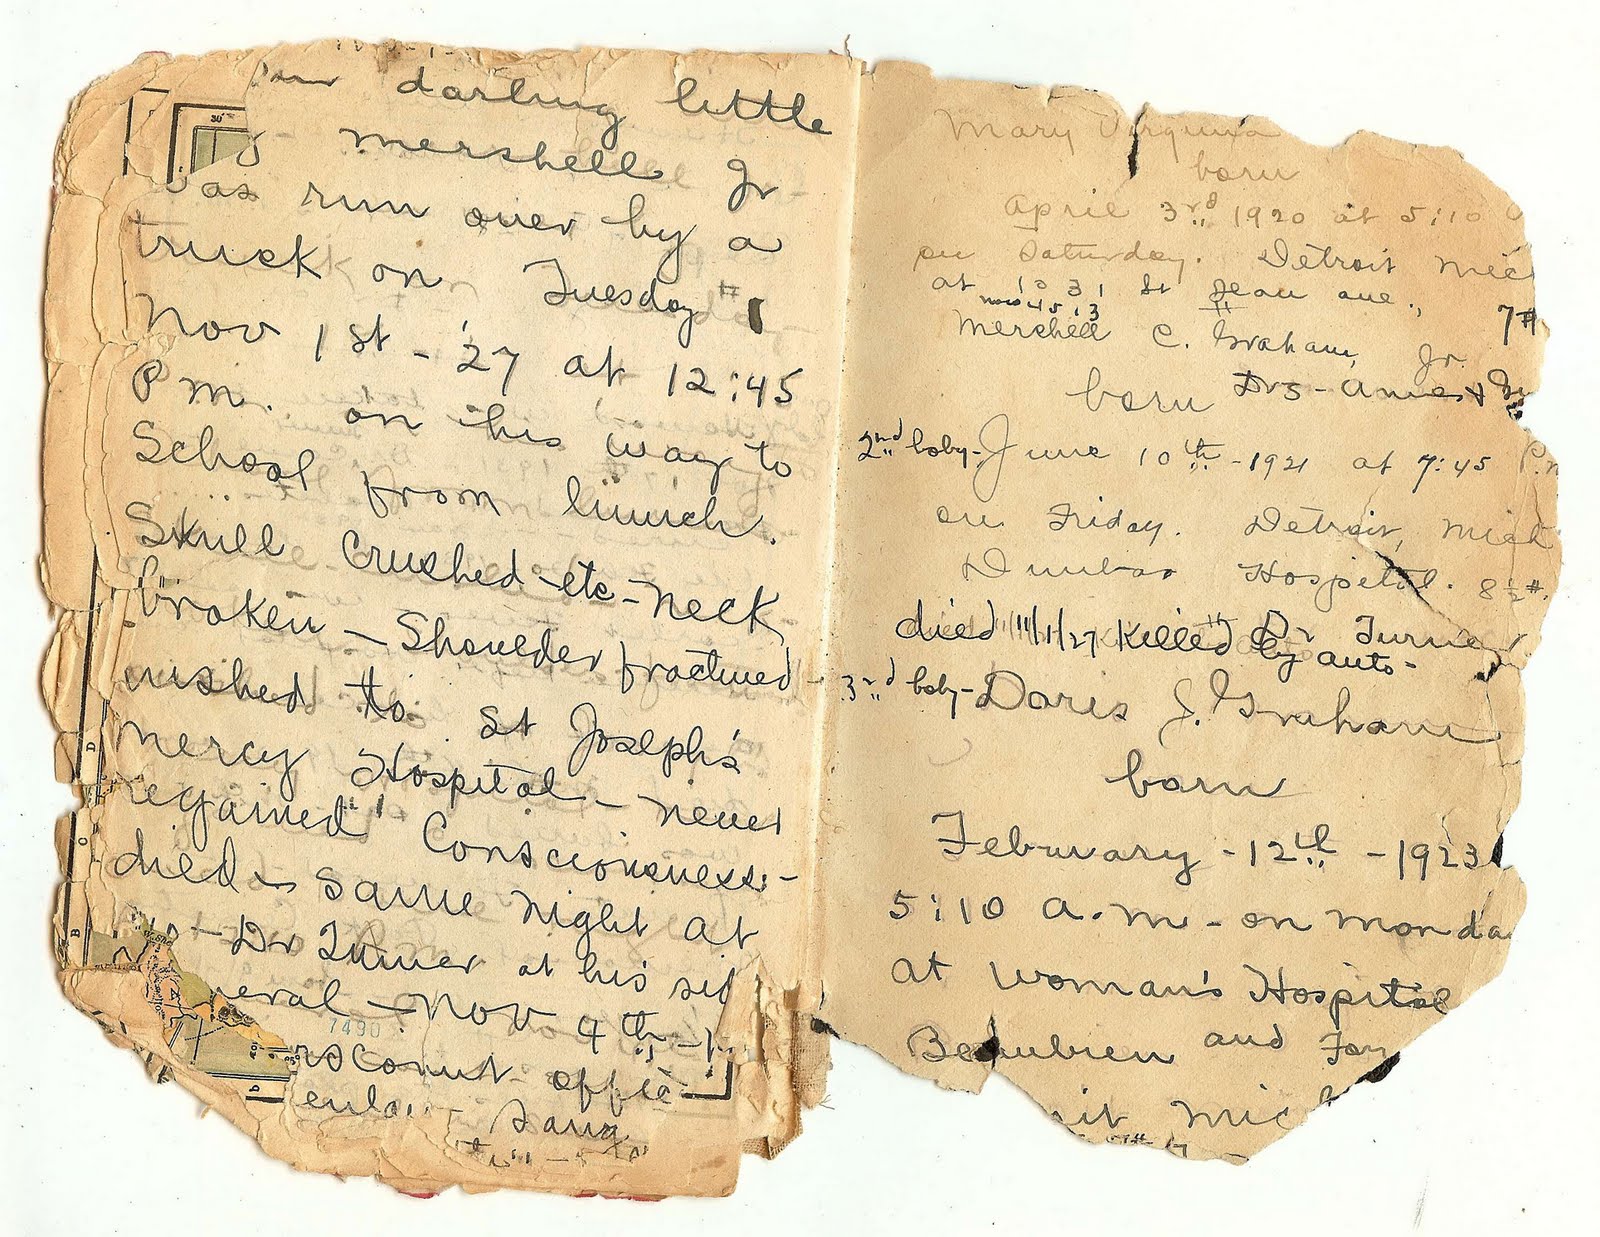 darling little
Mershell Jr
as run over by a
truck on Tuesday
Nov 1st - '27 at 12:45
P.M. on his way to
School from lunch.
Skull crushed - etc - neck
broken - Shoulder fractured -
rushed to St Joseph's
Mercy Hospital - never
regained Consciousness -
died - same night at
- Dr Turner at his sid
neral - Nov 4th -
7490
enla - Sang
Mary Virginia
born
April 3rd 1920 at 5:10
on Saturday. Detroit Mic
at 1031 St Jean ave., 7#
now 4513
Mershell C. Graham, Jr.
born Drs - Ames &
2nd baby - June 10th - 1921 at 7:45 P.M
on Friday. Detroit, Mich
Dunbar Hospital. 8½#.
Dr Turner
died 11/1/27 Killed by auto -
3rd baby - Doris J. Graham
born
February - 12th - 1923
5:10 a.m. - on Monda
at Woman's Hospital
Beaubien and For
it Mic